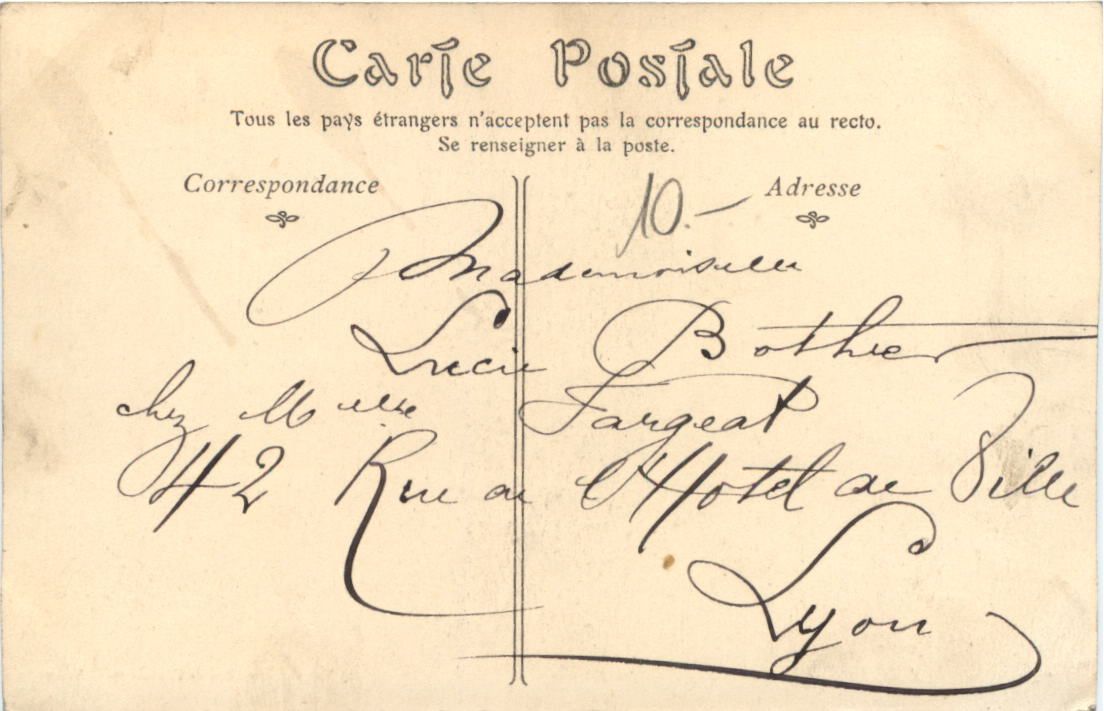 Carte Postale
Tous les pays étrangers n'acceptent pas la correspondance au recto.
Se renseigner à la poste.
Correspondance
Adresse
10.-
Mademoiselle
Lucie Bothier
chez Melle Fargeat
42 Rue de l'Hotel de Ville
Lyon